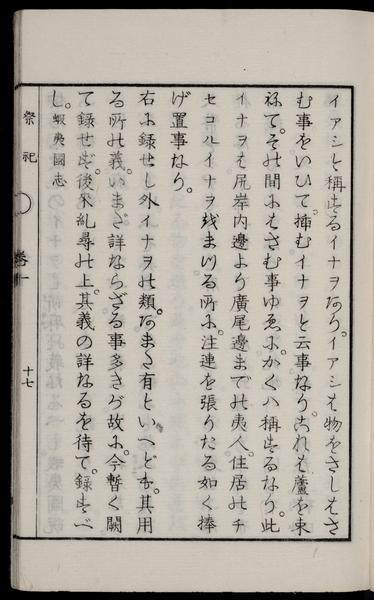 イアシと稱するイナヲなり。イアシは物をさしはさ
む事をいひて。揷むイナヲと云事なり。これは蘆を束
ねて。その間にはさむ事ゆゑに。かくハ稱するなり。此
イナヲは尻岸内邊より廣尾邊までの夷人。住居のチ
セコルイナヲを奉る所に。注連を張りたる如く捧
げ置事なり。
右に録せし外イナヲの類。なほまた有といへども。其用
る所の義。いまだ詳ならざる事多きが故に。今暫く闕
て録せず。後來糺尋の上。其義の詳なるを待て。録すべ
し。蝦夷國志
祭祀
卷一
十七